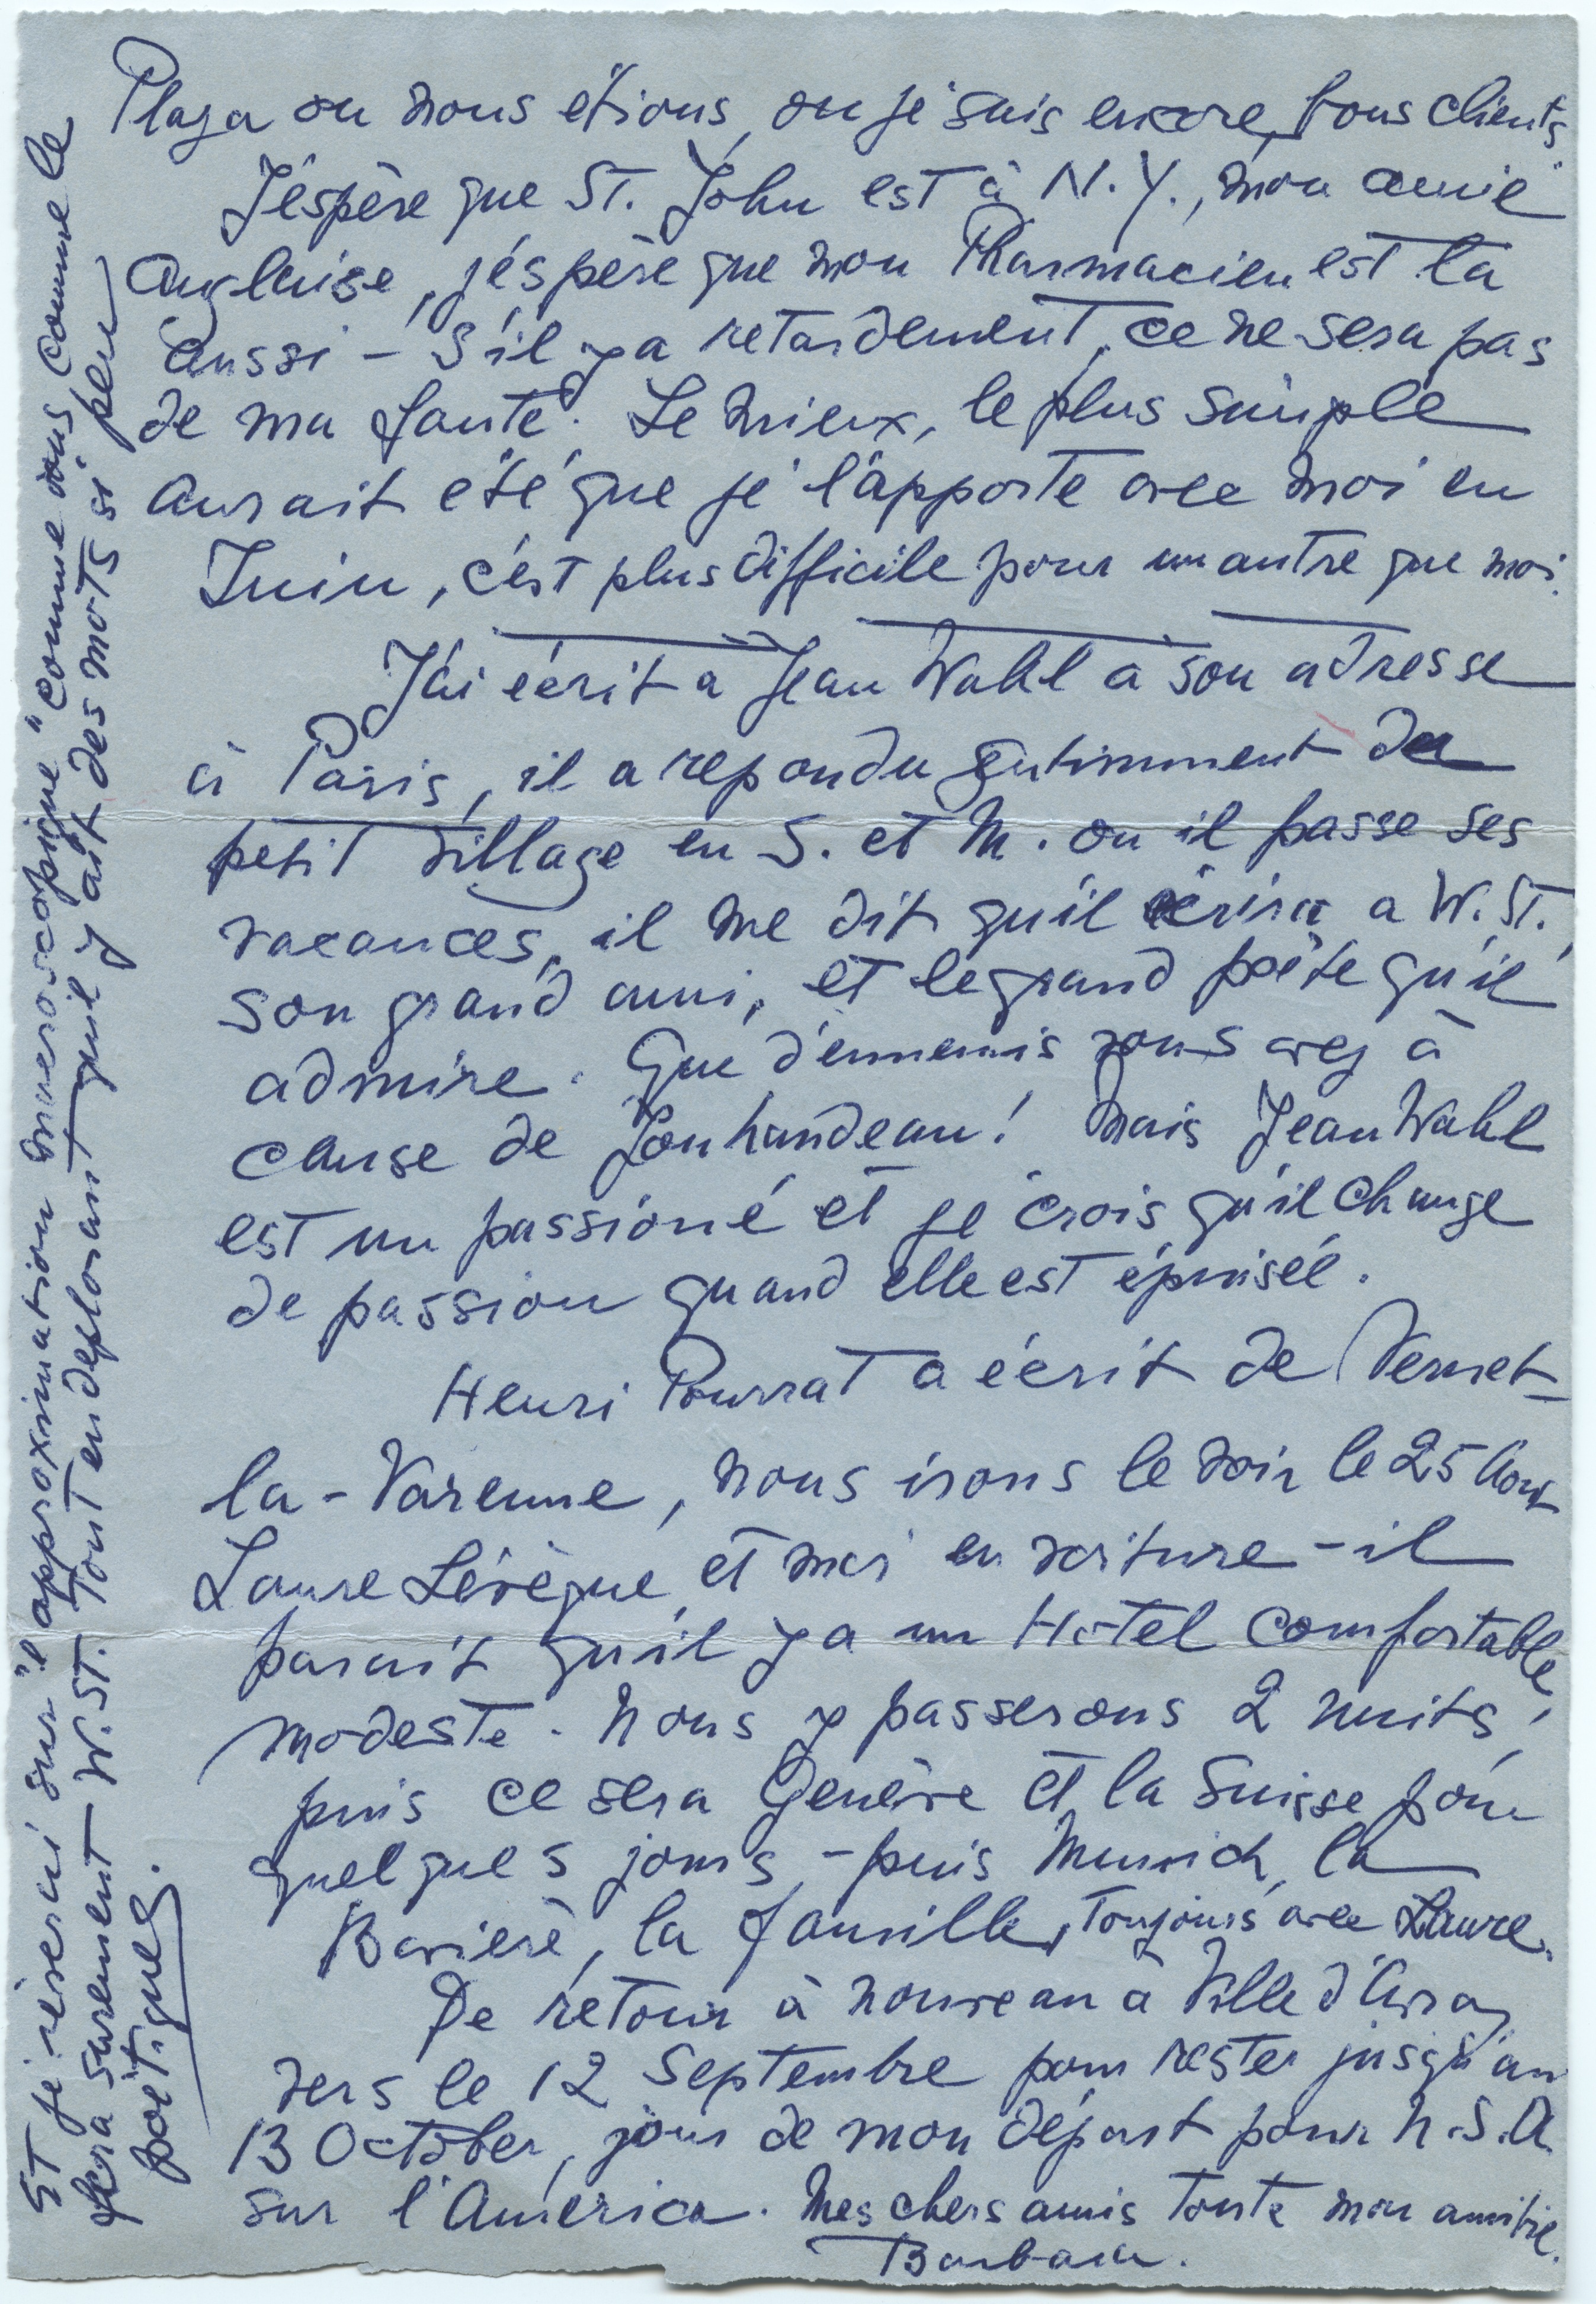 Plaza ou nous étions, ou je suis encore, bons clients.
J'éspère que St. John est à N.Y., mon amie
Anglaise, j'éspère que mon Pharmacien est la
aussi – S'il y a retardement, ce ne sera pas
de ma faute. Le mieux, le plus simple
aurait été que je l'apporte avec moi en
Juin, c'est plus difficile pour un autre que moi.
J'ai écrit a Jean Wahl a son adresse
à Paris, il a repondu gentimment du
petit village en S. et M. ou il passe ses
vacances, il me dit qu'il écrira a W. St.,
son grand ami, et le grand poëte qu'il
admire. Que d'ennemis vous avez à
cause de Jouhandeau! Mais Jean Wahl
est un passioné et je crois qu'il change
de passion quand elle est épuisée.
Henri Pourrat a écrit de Vernet-
la-Varenne, nous irons le voir le 25 Aout
Laure Lévèque et moi en voiture – il
parait qu'il y a un Hotel comfortable,
modeste. Nous y passerons 2 nuits,
puis ce sera Genève et la Suisse pour
quelques jours, – puis Munich, la
Bavière, la famille, toujours avec Laure.
De retour à nouveau à Ville d'Avray
vers le 12 Septembre pour rester jusqu'au
13 October, jour de mon départ pour U.S.A.
sur l'America. Mes chers amis toute mon amitié.
Barbara.
Et je reserai sur "l'approximation macroscopique" comme vous, comme le
fera surement W. St. Tout en deplorant qu'il y ait des mots si peu
poëtiques.